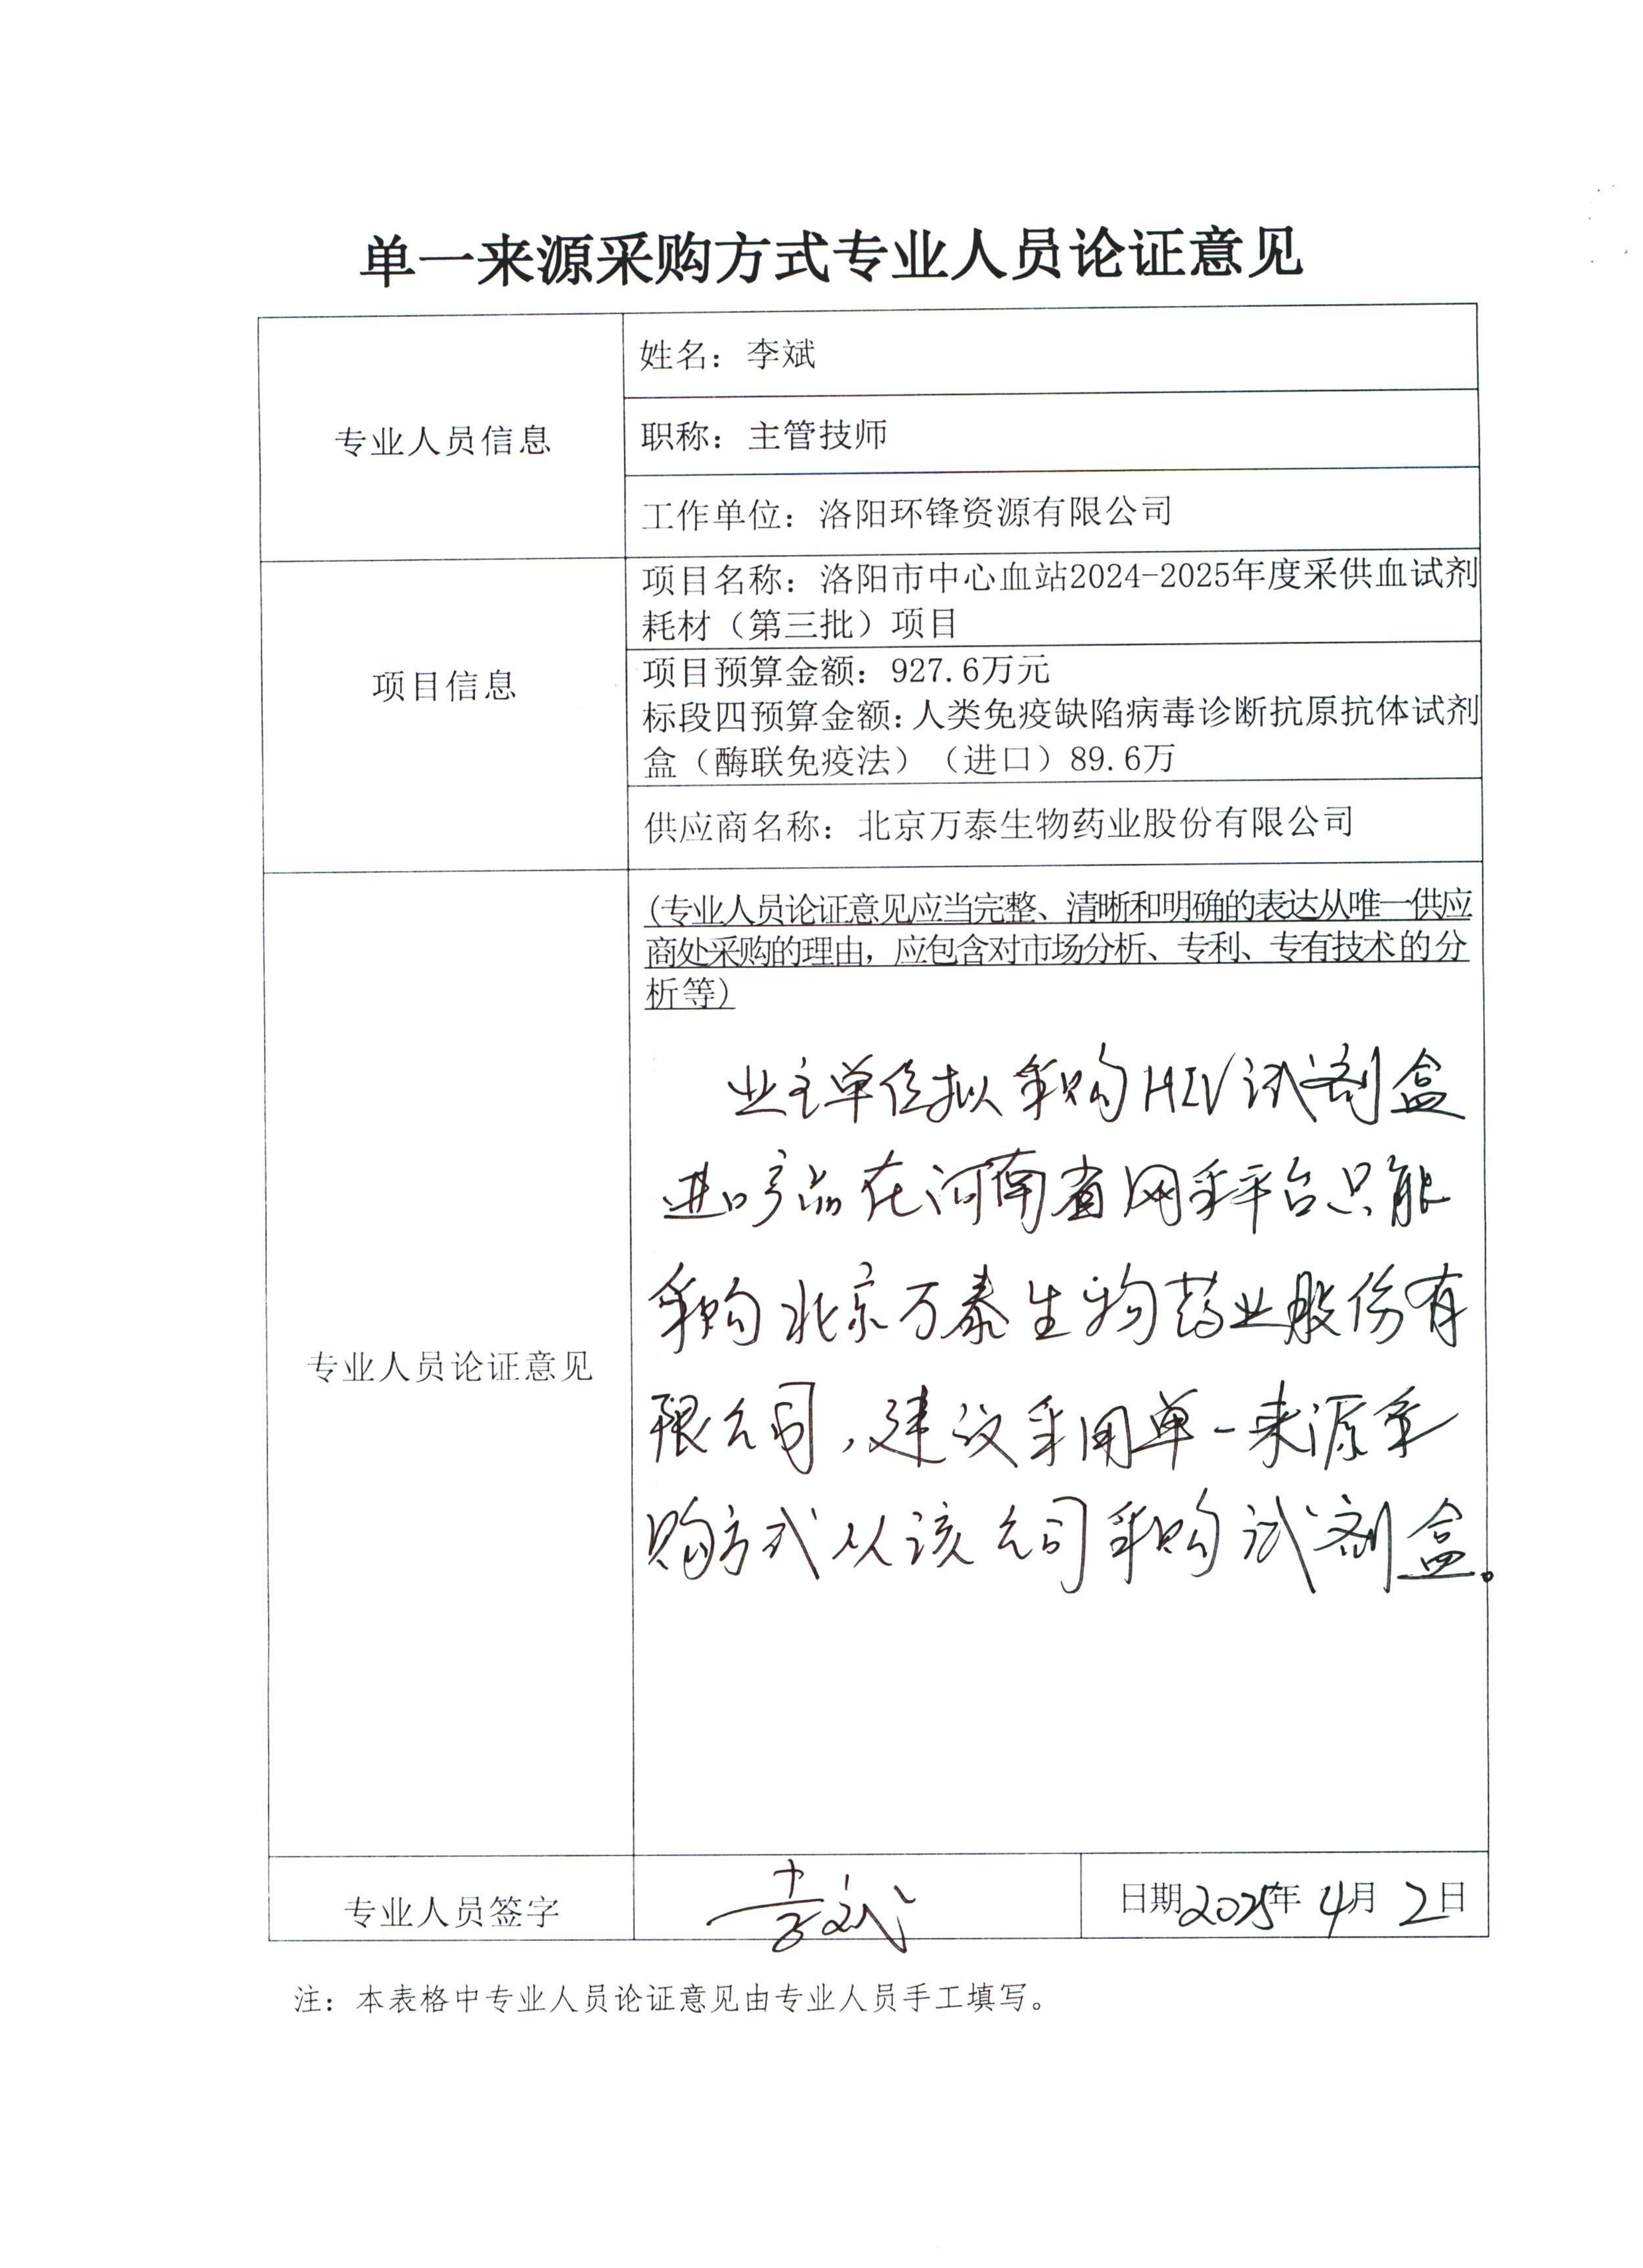 单一来源采购方式专业人员论证意见
专业人员信息
姓名：李斌
职称：主管技师
工作单位：洛阳环锋资源有限公司
项目信息
项目名称：洛阳市中心血站2024-2025年度采供血试剂
耗材（第三批）项目
项目预算金额：927.6万元
标段四预算金额：人类免疫缺陷病毒诊断抗原抗体试剂
盒（酶联免疫法）（进口）89.6万
供应商名称：北京万泰生物药业股份有限公司
专业人员论证意见
(专业人员论证意见应当完整、清晰和明确的表达从唯一供应
商处采购的理由，应包含对市场分析、专利、专有技术的分
析等)
业主单位拟采购HIV试剂盒
进口产品在河南省网采平台只能
采购北京万泰生物药业股份有
限公司，建议采用单一来源采
购方式从该公司采购试剂盒。
专业人员签字
李斌
日期2025年4月2日
注：本表格中专业人员论证意见由专业人员手工填写。